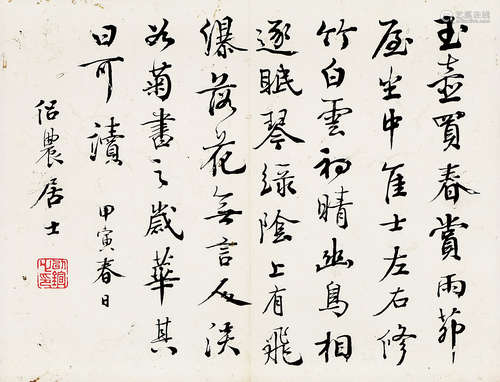 玉壺買春賞雨茆
屋坐中佳士左右修
竹白雲初晴幽鳥相
逐眠琴綠陰上有飛
瀑落花無言人淡
如菊書之歲華其
曰可讀
甲寅春日
農居士